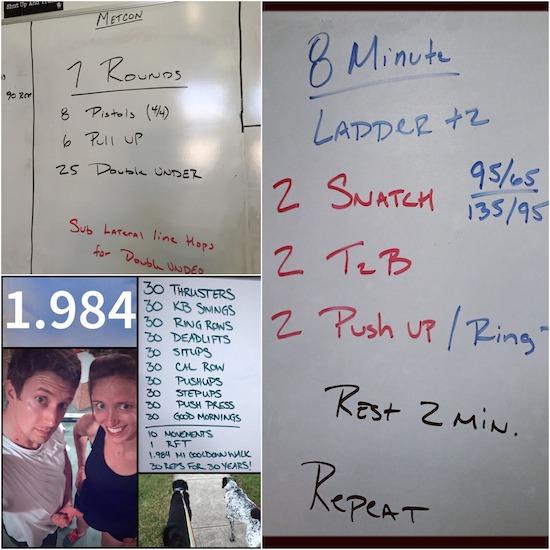 Shut Up And Train
METCON
7 ROUNDS
8 Pistols (4/4)
6 Pull UP
25 Double UNDER
Sub Lateral line Hops
for Double UNDER
90 REM
8 Minute
LADDER +2
2 SNATCH 95/65
135/95
2 T2B
2 Push up / Ring
REST 2 MIN.
REPEAT
1.984
30 THRUSTERS
30 KB SWINGS
30 RING ROWS
30 DEADLIFTS
30 SITUPS
30 CAL ROW
30 PUSHUPS
30 STEPUPS
30 PUSH PRESS
30 GOOD MORNINGS
10 MOVEMENTS
1 RFT
1.984 MI COOLDOWN WALK
30 REPS FOR 30 YEARS!